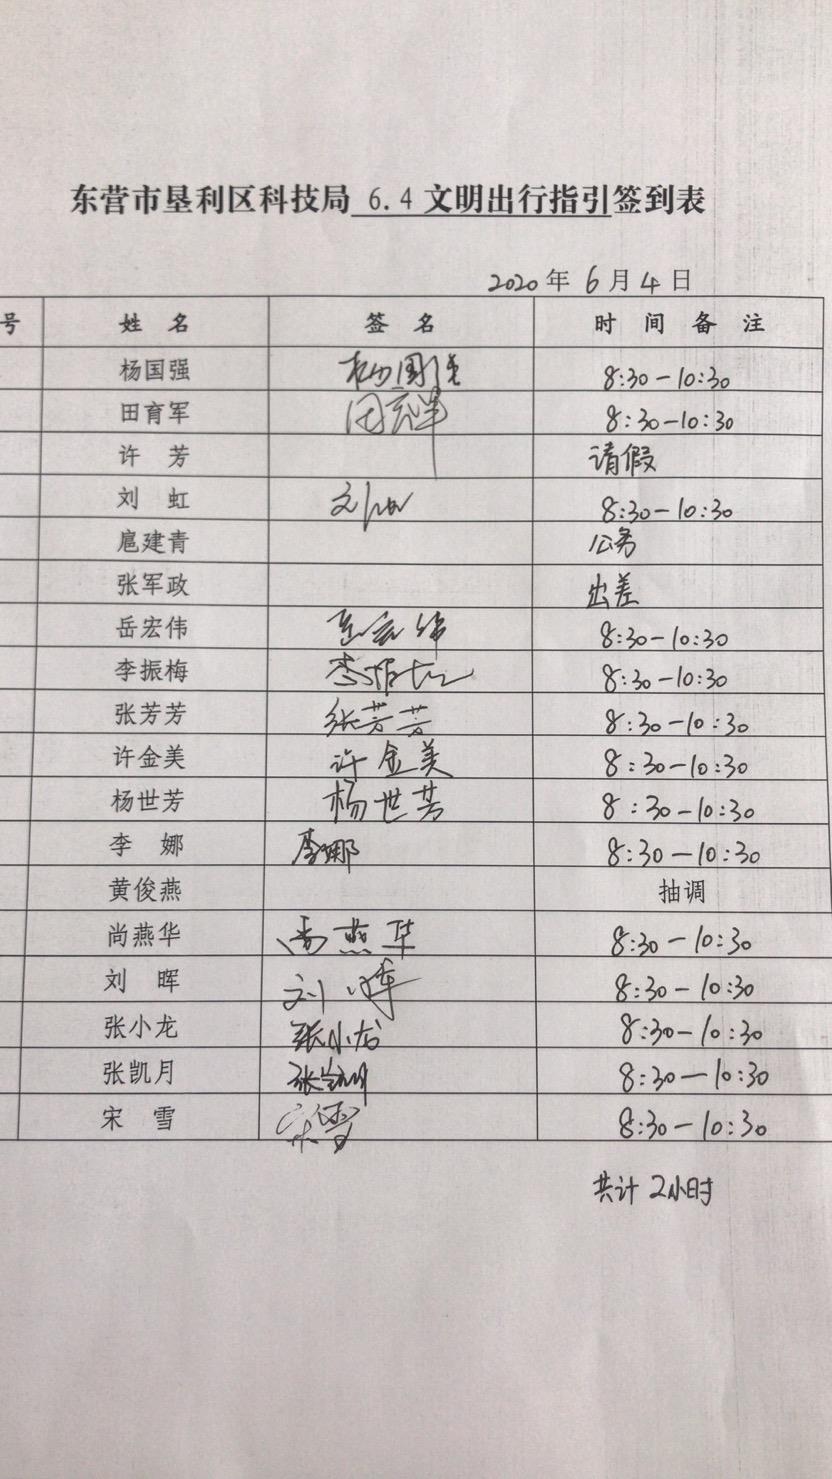 东营市垦利区科技局 6.4 文明出行指引签到表
2020 年 6 月 4 日
号 姓 名 签 名 时 间 备 注
杨国强 杨国强 8:30-10:30
田育军 田育军 8:30-10:30
许 芳 请假
刘 虹 刘虹 8:30-10:30
扈建青 公务
张军政 出差
岳宏伟 岳宏伟 8:30-10:30
李振梅 李振梅 8:30-10:30
张芳芳 张芳芳 8:30-10:30
许金美 许金美 8:30-10:30
杨世芳 杨世芳 8:30-10:30
李 娜 李娜 8:30-10:30
黄俊燕 抽调
尚燕华 尚燕华 8:30-10:30
刘 晖 刘晖 8:30-10:30
张小龙 张小龙 8:30-10:30
张凯月 张凯月 8:30-10:30
宋 雪 宋雪 8:30-10:30
共计 2小时